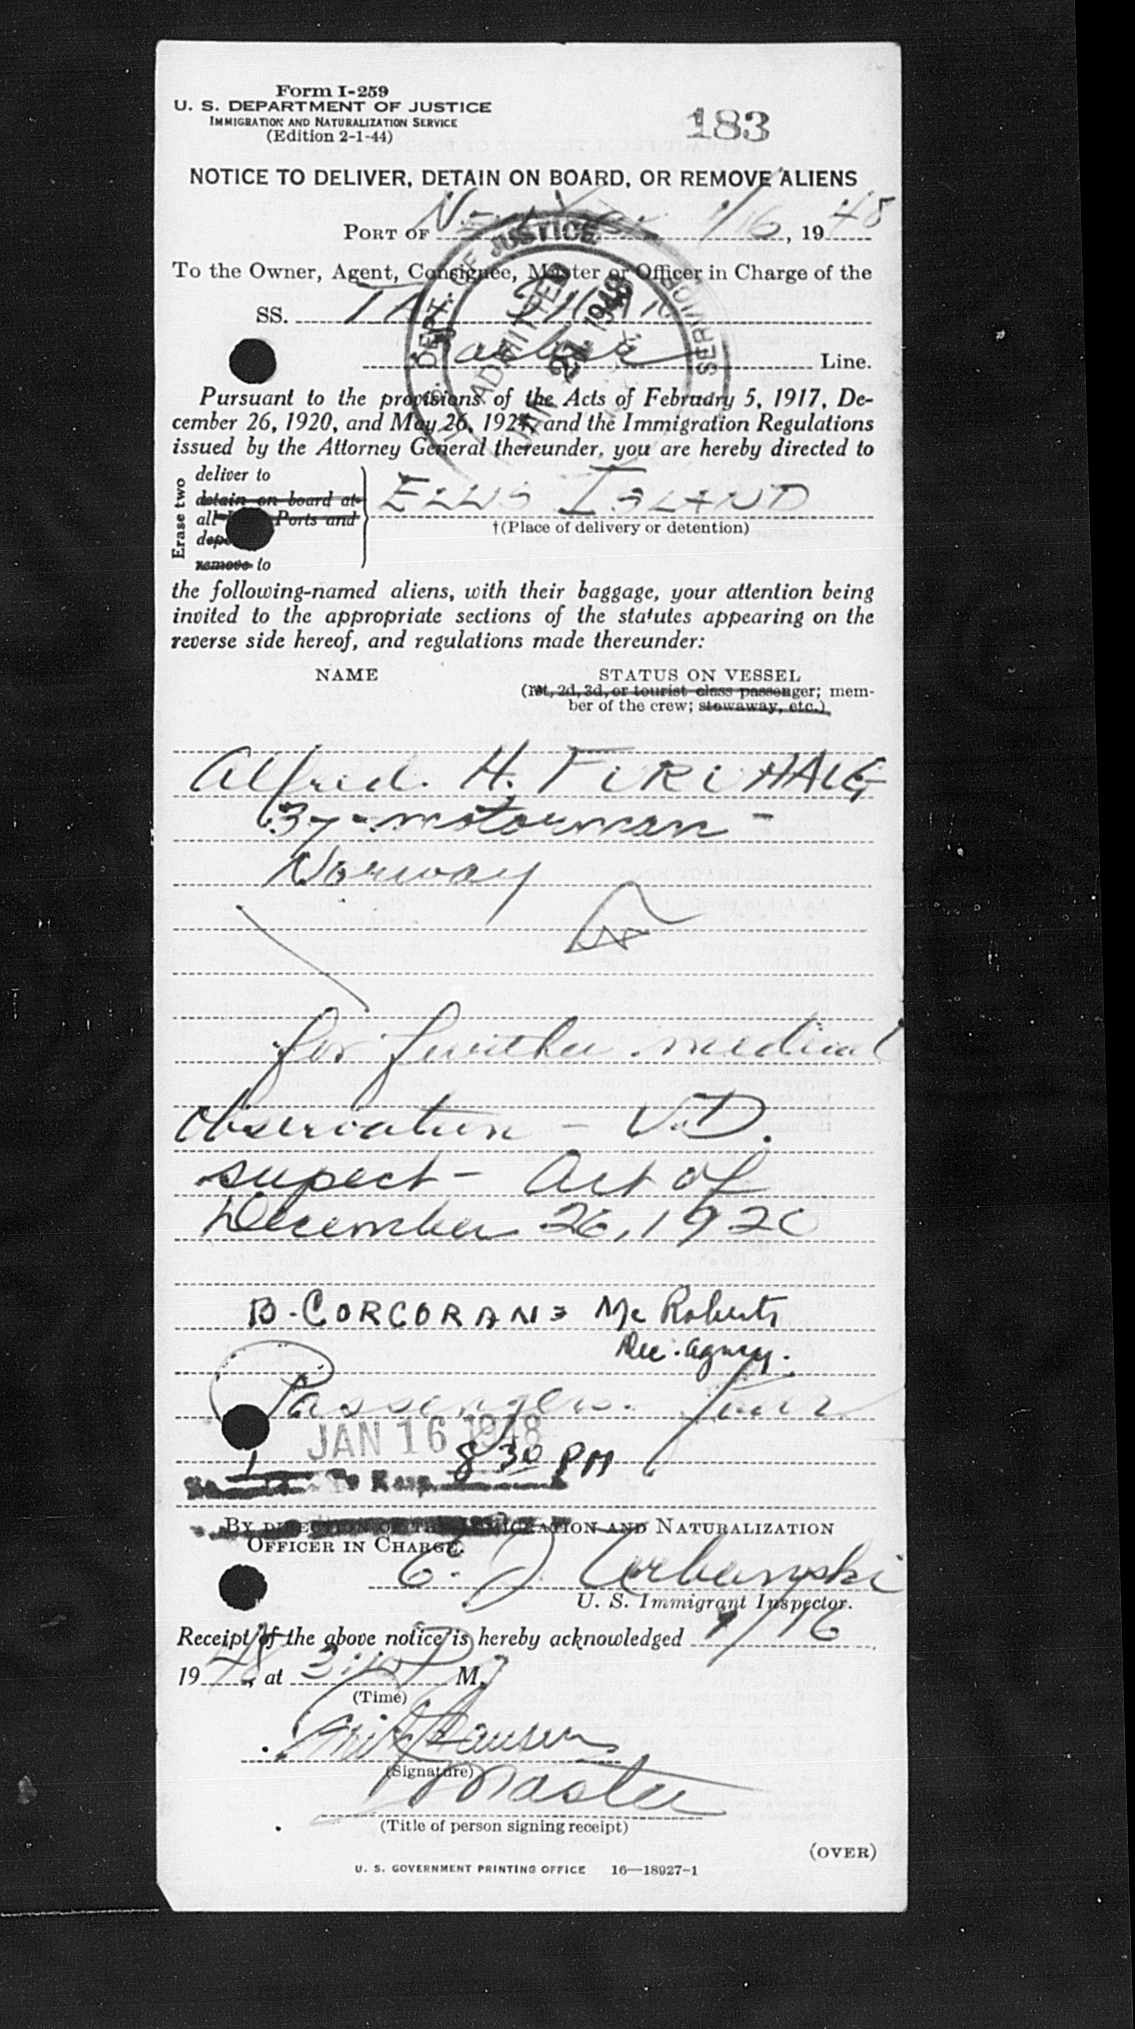 Form I-259
U. S. DEPARTMENT OF JUSTICE
IMMIGRATION AND NATURALIZATION SERVICE
(Edition 2-1-44)
183
NOTICE TO DELIVER, DETAIN ON BOARD, OR REMOVE ALIENS
PORT OF New York 1/16, 1948
To the Owner, Agent, Consignee, Master or Officer in Charge of the
SS.
Line.
DEPT. OF JUSTICE
ADMITTED
JAN 21 1948
Pursuant to the provisions of the Acts of February 5, 1917, De-
cember 26, 1920, and May 26, 1924, and the Immigration Regulations
issued by the Attorney General thereunder, you are hereby directed to
Erase two
deliver to
detain on board at
all Ports and
remove to
ELLIS ISLAND
†(Place of delivery or detention)
the following-named aliens, with their baggage, your attention being
invited to the appropriate sections of the statutes appearing on the
reverse side hereof, and regulations made thereunder:
NAME STATUS ON VESSEL
(1st, 2d, 3d, or tourist class passenger; mem-
ber of the crew; stowaway, etc.)
Alfred. H. FURUHAUG
37 - motorman -
Norway
for further medical
observation - V.D.
supect - Act of
December 26, 1920
B. CORCORAN McRoberts
agency.
Passengers. four
JAN 16 1948
1 8 30 PM
BY DIRECTION OF THE IMMIGRATION AND NATURALIZATION
OFFICER IN CHARGE.
E. J. Urbanski
U. S. Immigrant Inspector.
Receipt of the above notice is hereby acknowledged 1/16
1948, at P M.
(Time)
Hansen
(Signature)
Master
(Title of person signing receipt)
(OVER)
U. S. GOVERNMENT PRINTING OFFICE 16—18927-1